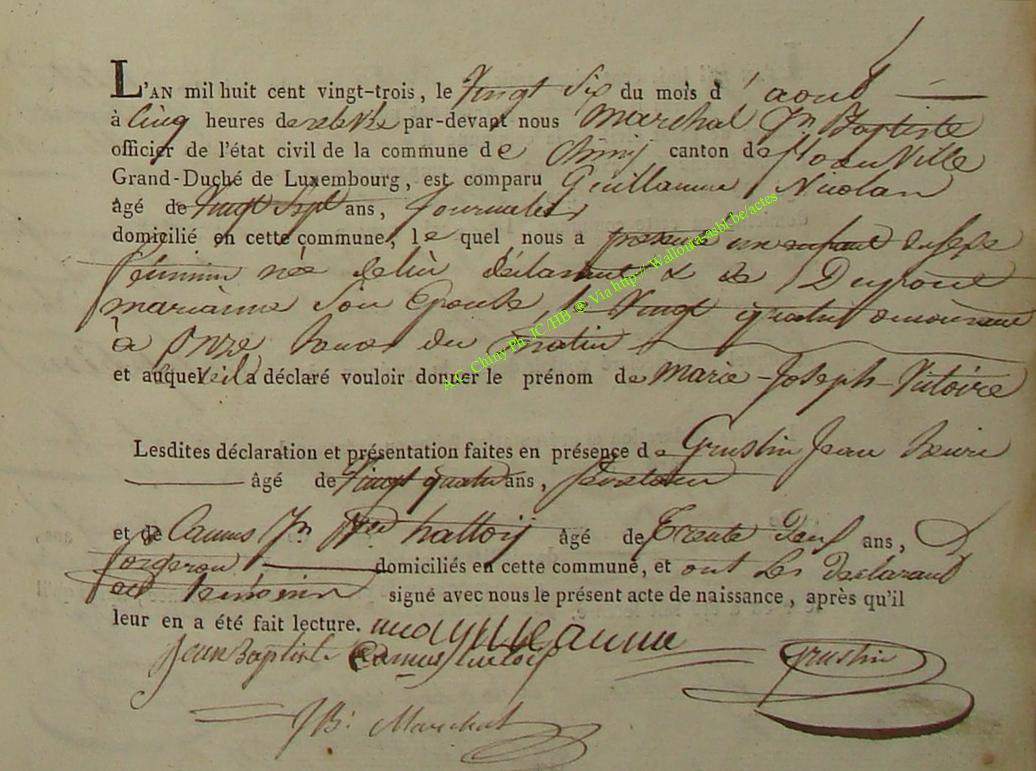 L'AN mil huit cent vingt-trois, le Vingt Six du mois d' aout
à Cinq heures de relevée par-devant nous Marchal Jn Baptiste
officier de l'état civil de la commune de Chiny canton de florenville
Grand-Duché de Luxembourg, est comparu Guillaume Nicolas
âgé de Vingt Sept ans, Journalier
domicilié en cette commune, le quel nous a présenté un enfant du Sexe
féminin née de lui déclarant & de Dupont
marianne Son Epouse, le Vingt quatre
à Onze heures du matin
et auquel il a déclaré vouloir donner le prénom de Marie-Joseph-Victoire
Lesdites déclaration et présentation faites en présence de Grustin Jean henri
âgé de Vingt quatre ans,
et de Camus Jn âgé de Trente Deux ans,
forgeron domiciliés en cette commune, et ont Les Declarant
et témoins signé avec nous le présent acte de naissance, après qu'il
leur en a été fait lecture.
Jean Baptiste Camus Grustin
JB: Marchal
A.G. Chiny Ph. JC /HB ® Via http:// Wallonia-asbl.be/actes